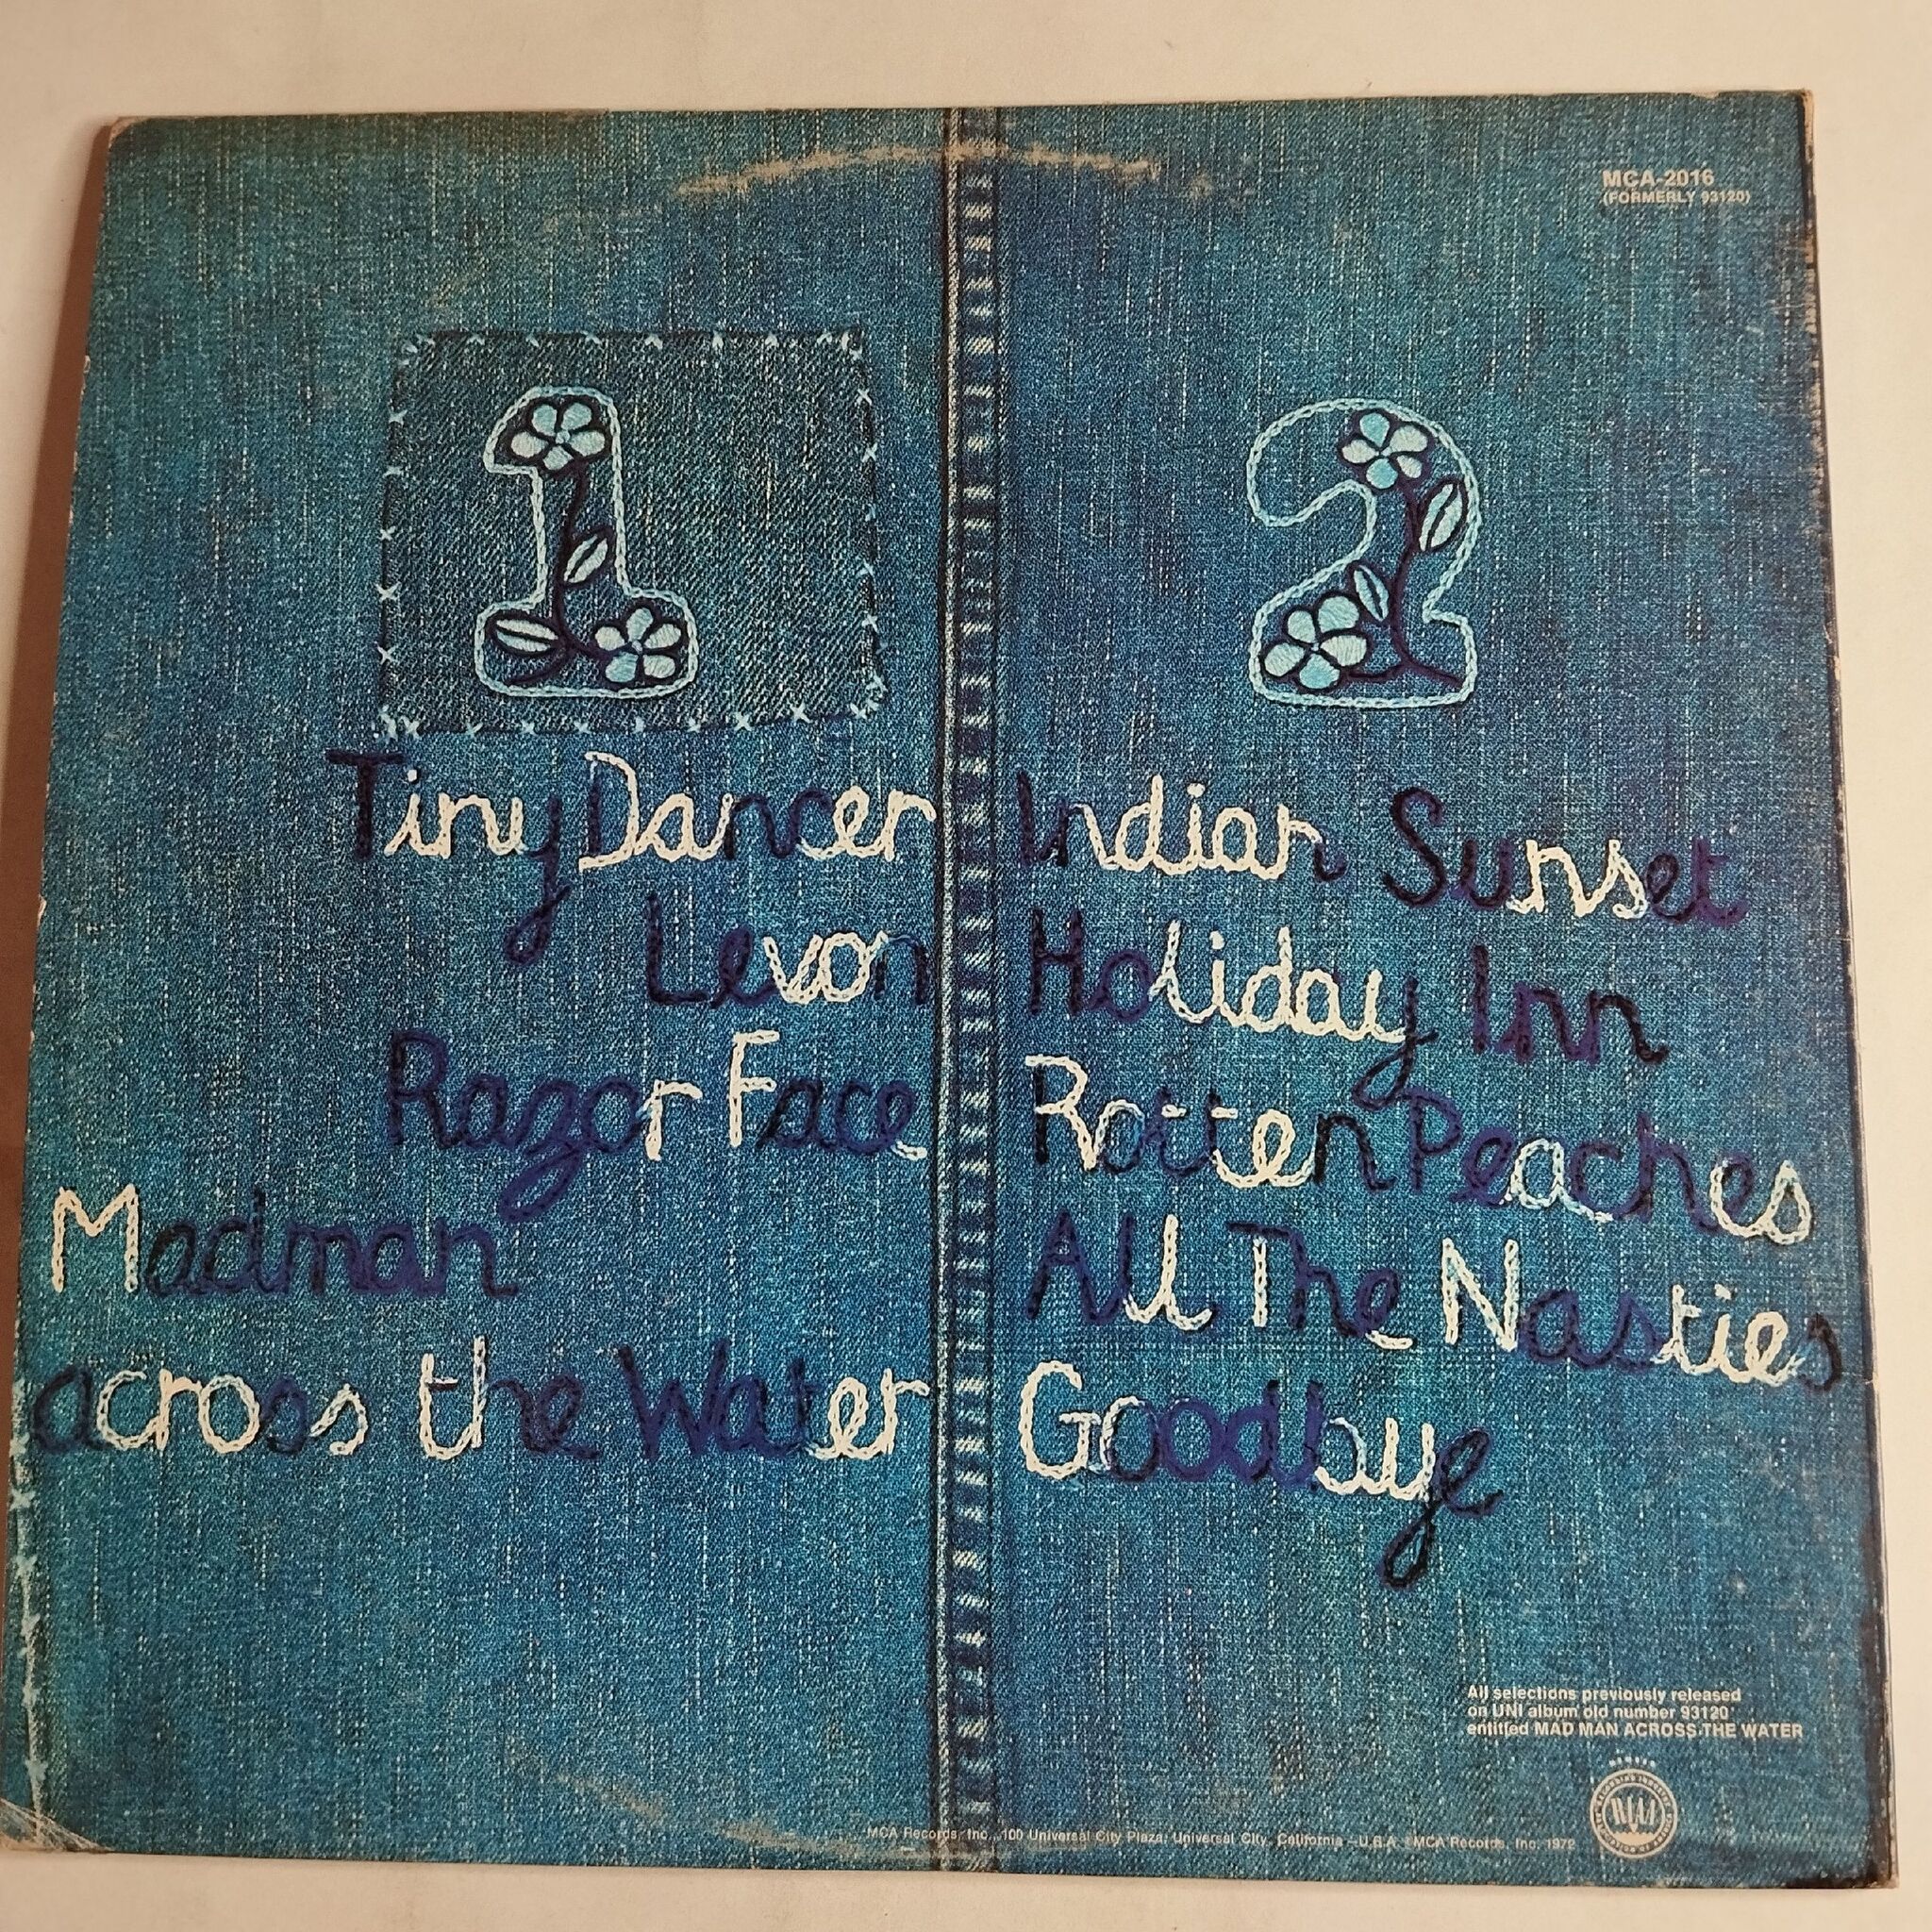 MCA-2016
(FORMERLY 93120)
1
Tiny Dancer
Levon
Razor Face
Madman
across the Water
2
Indian Sunset
Holiday Inn
Rotten Peaches
All The Nasties
Goodbye
All selections previously released
on UNI album old number 93120
entitled MAD MAN ACROSS THE WATER
MEMBER
RIAA
MCA Records, Inc., 100 Universal City Plaza, Universal City, California - U.S.A. MCA Records, Inc. 1972